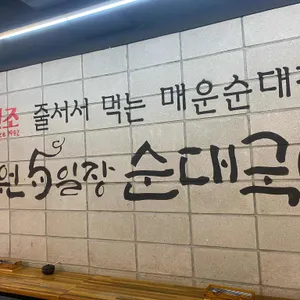 조 줄서서 먹는 매운순대
원5일장 순대국